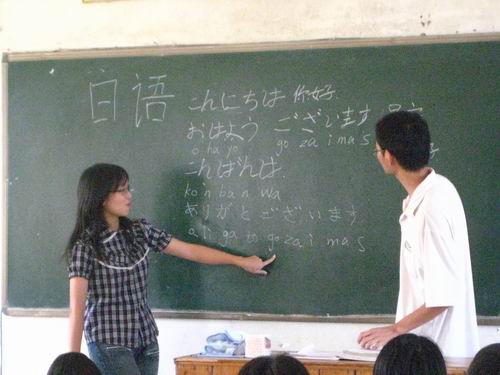 日语
こんにちは 你好
おはよう ございます
o ha yo go za i ma s
こんばんは.
ko n ba n wa
ありがと ございます.
a li ga to go za i ma s